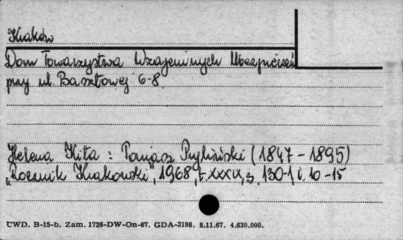 Kraków
Dom Towarzystwa Wzajemnych Ubezpieczeń
przy ul. Basztowej 6-8.
Helena Kita: Tomasz Pryliński (1847-1895)
"Rocznik Krakowski", 1968, t. XXXIX, s. 130-1, il. 10-15
CWD. B-15-b. Zam. 1726-DW-On-67. GDA-3198. 8.11.67. 4.630.000.